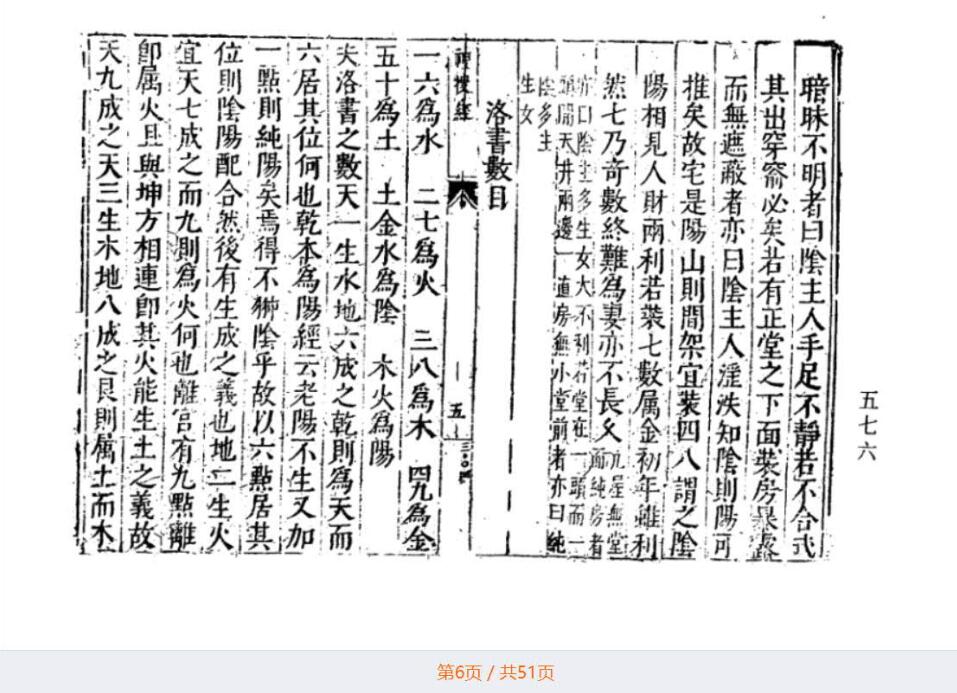 暗昧不明者曰陰主人手足不靜若不合式
其出穿窬必矣若有正堂之下面裝房暴露
而無遮蔽者亦曰陰主人淫泆知陰則陽可
推矣故宅是陽山則間架宜裝四八謂之陰
陽相見人財兩利若裝七數属金初年雖利
然七乃奇數終難為妻亦不長久
九屋無堂面純房者
亦曰陰主多生女大不利若堂在一頭而一
頭開天井兩邊一道房無小堂前者亦曰純
陰多生
生女
洛書數目
五
一六為水 二七為火 三八為木 四九為金
五十為土 土金水為陰 木火為陽
夫洛書之數天一生水地六成之乾則為天而
六居其位何也乾本為陽經云老陽不生又加
一點則純陽矣焉得不獅陰乎故以六點居其
位則陰陽配合然後有生成之義也地二生火
宜天七成之而九則為火何也離宮有九點離
卽属火且與坤方相連卽其火能生土之義故
天九成之天三生木地八成之艮則属土而木
五七六
第6页 / 共51页